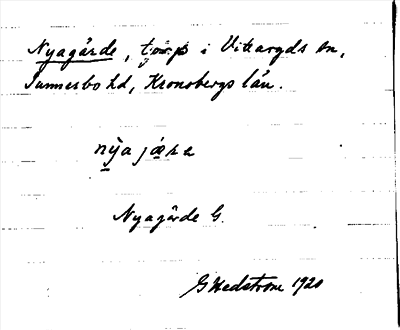 Nyagärde, torp i Vitaryds sn,
Sunnerbo hd, Kronobergs län.
Nyagärde G.
G Hedström 1920